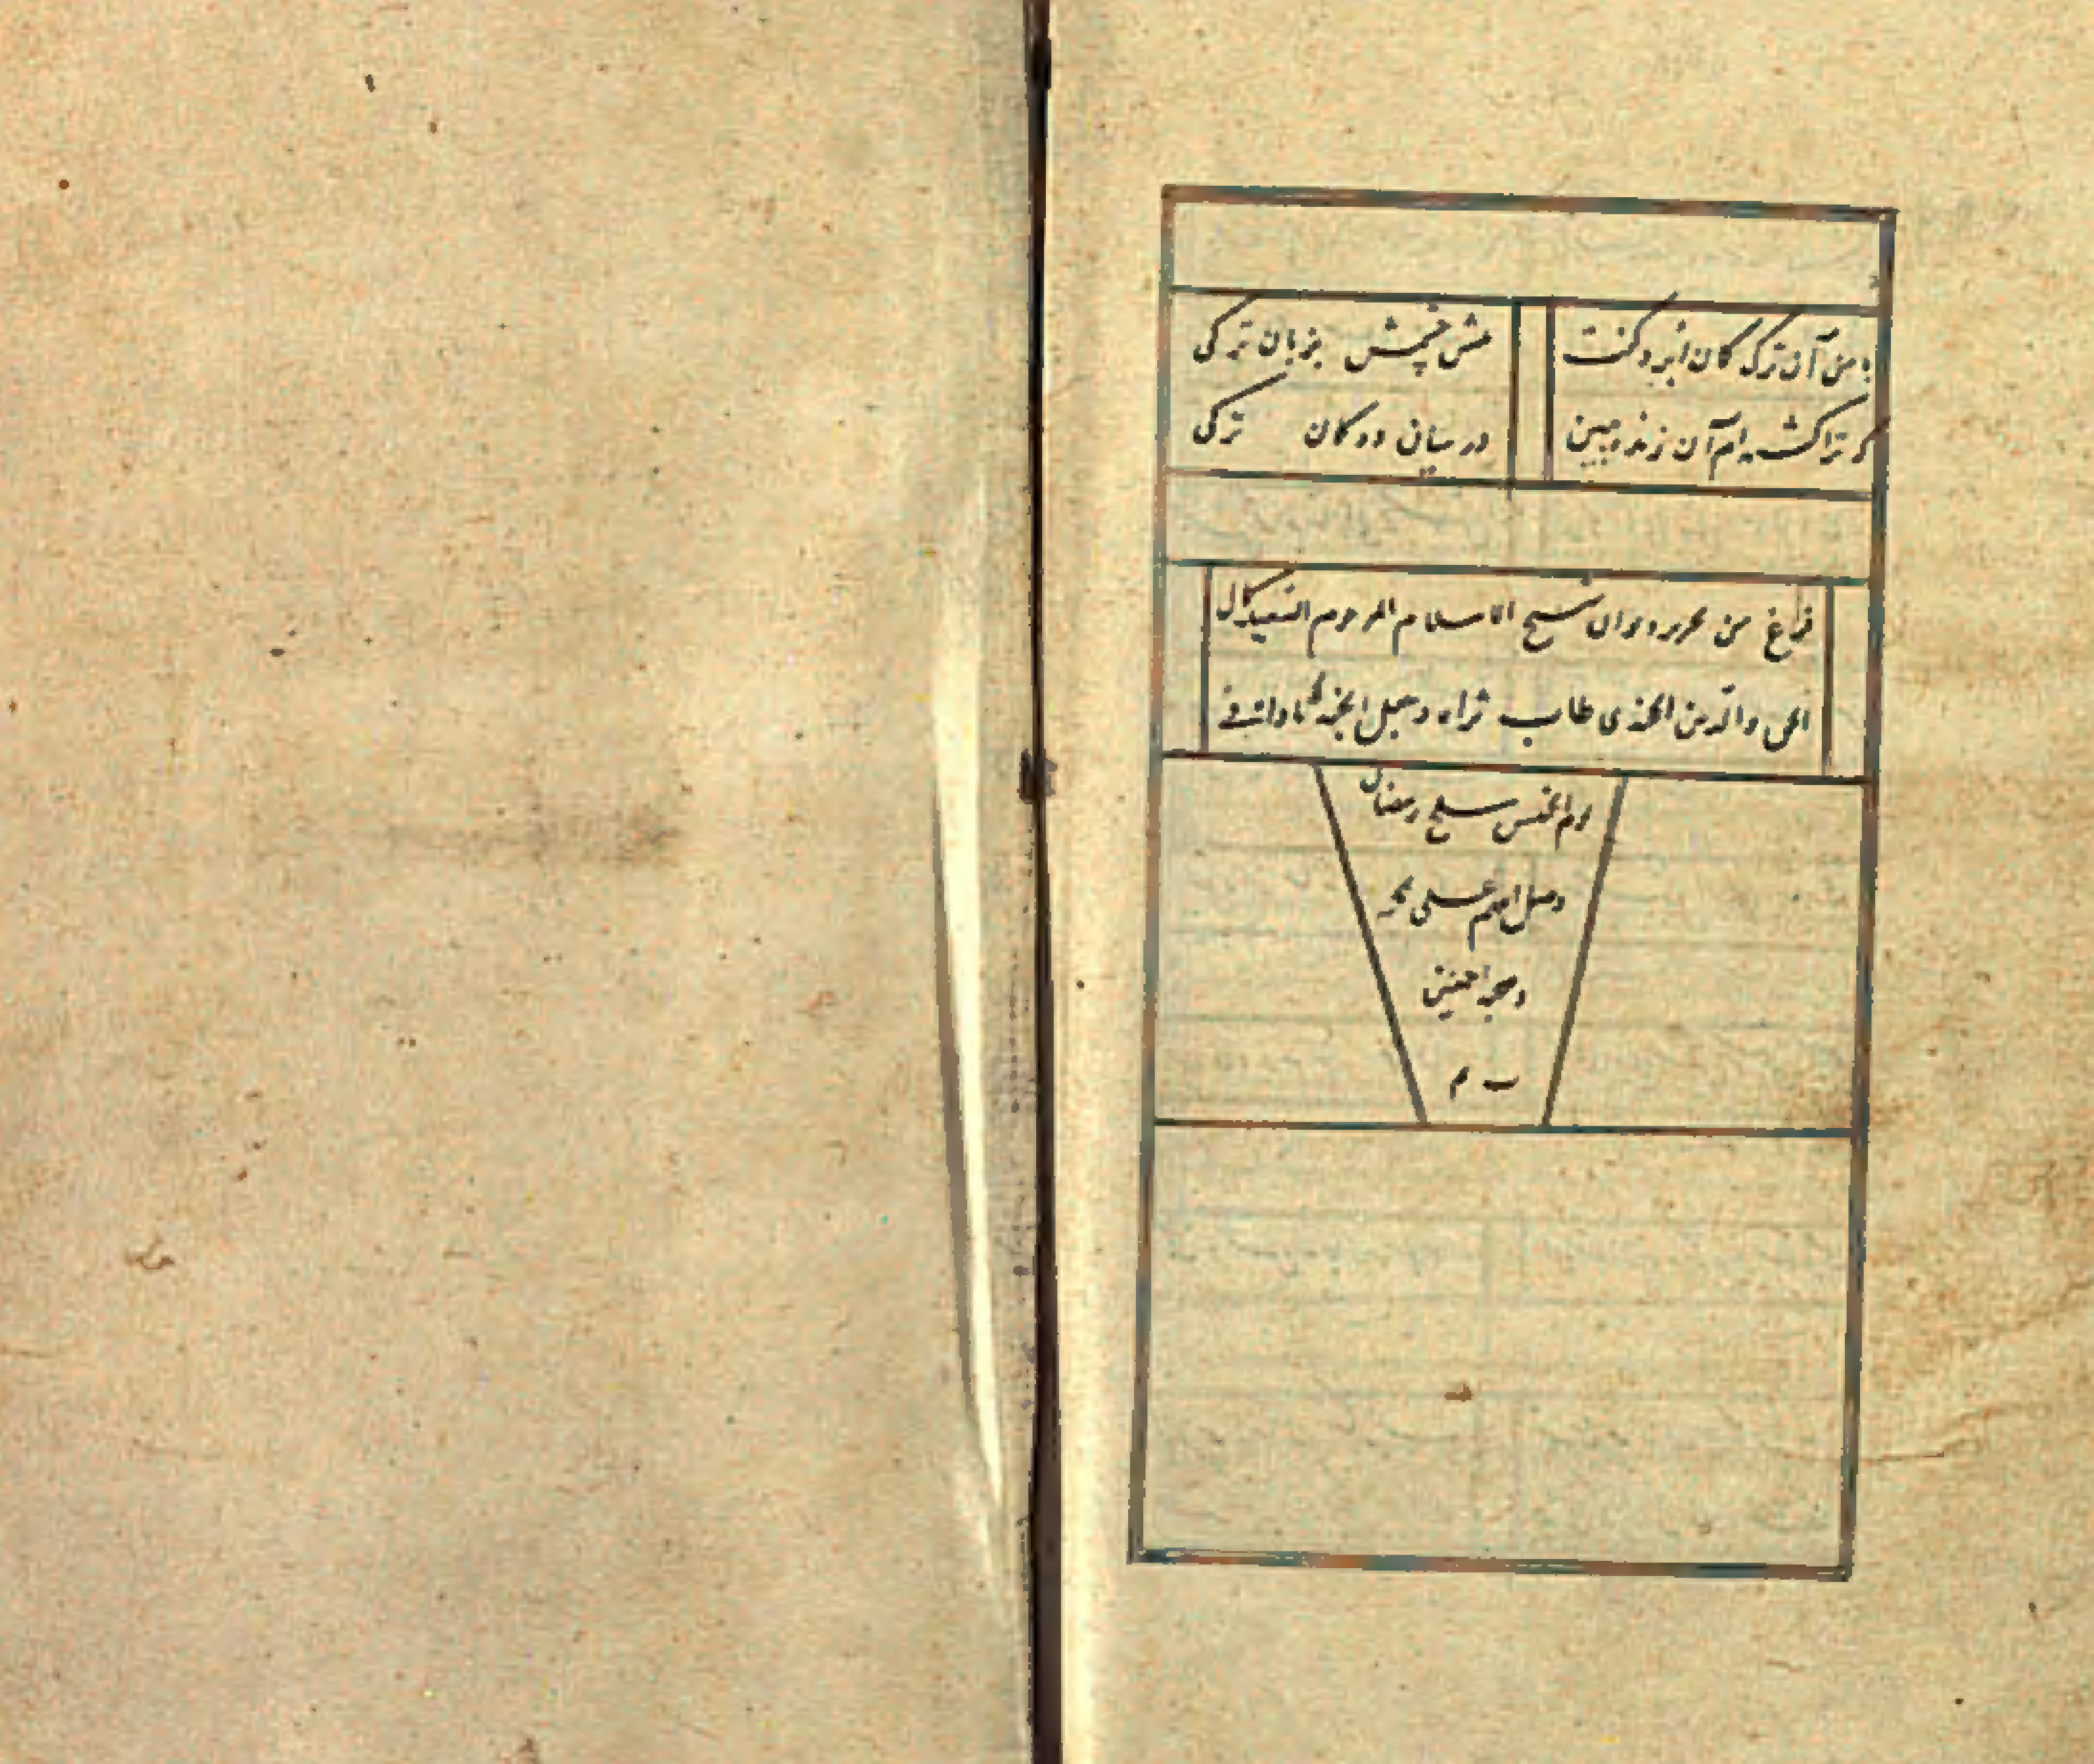 با من آن ترک کمان ابرو گفت
مش خپش بزبان ترکی
که ترا کشته‌ام آن زنده ببین
در میان دو کمان ترکی
فراغ من تحریر دیوان شیخ الاسلام المرحوم السعید کمال
الحق والدین الخجندی طاب ثراه وجعل الجنة مثواه فی
یوم الخمیس سلخ رمضان
وصل اللهم علی محمد
وصحبه اجمعین
م